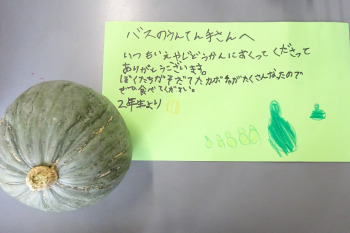 バスのうんてん手さんへ
いつもいえやじどうかんにおくってくださって
ありがとうございます。
ぼくたちがそだてたカボちゃがたくさんなったので
ぜひ食べてください。
2年生より